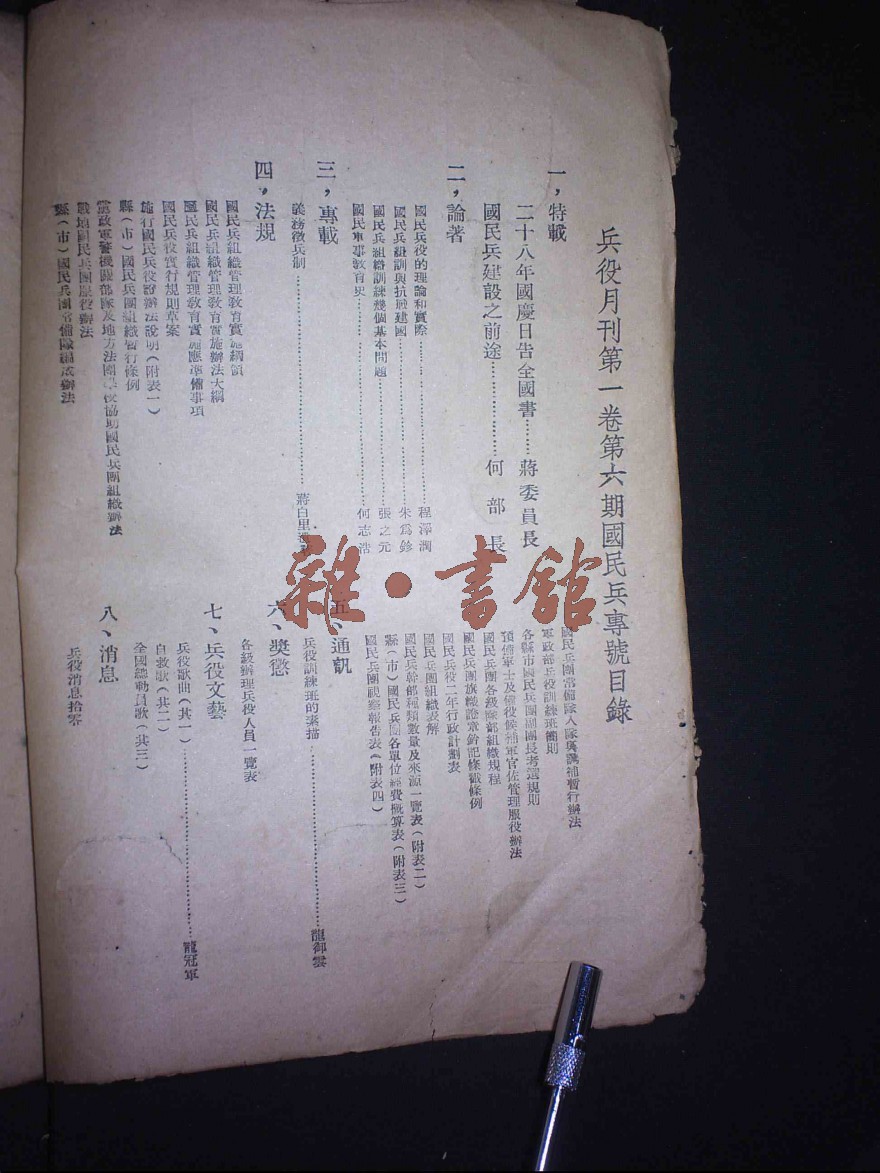 兵役月刊第一卷第六期國民兵專號目錄
一，特載
二十八年國慶日告全國書………蔣委員長
國民兵建設之前途………………何部長
二，論著
國民兵役的理論和實際………………程澤潤
國民兵組訓與抗戰建國………………朱為鉁
國民兵組織訓練幾個基本問題………………張之元
國民軍事教育史………………何志浩
三，專載
義務徵兵制………………蔣百里
四，法規
國民兵組織管理教育實施綱領
國民兵組織管理教育實施辦法大綱
國民兵組織管理教育實施應準備事項
國民兵役實行規則草案
施行國民兵役紛辦法說明（附表一）
縣（市）國民兵團組織暫行條例
黨政軍警機關部隊及地方法團學校協助國民兵團組織辦法
戰地國民兵團服役辦法
縣（市）國民兵團常備隊編成辦法
國民兵團常備隊入隊與調補暫行辦法
軍政部兵役訓練班簡則
各縣市國民兵團副團長考選規則
預備軍士及備役候補軍官佐管理服役辦法
國民兵團各級隊部組織規程
國民兵團旗幟證章鈐記條戳條例
國民兵役二年行政計劃表
國民兵團組織表解
國民兵幹部種類數量及來源一覽表（附表二）
縣（市）國民兵團各單位經費概算表（附表三）
國民兵團視察報告表（附表四）
五、通訊
兵役訓練班的素描………………龍御雲
六、獎懲
各級辦理兵役人員一覽表
七、兵役文藝
兵役歌曲（其一）………………龍冠軍
自救歌（其二）
全國總動員歌（其三）
八、消息
兵役消息拾零
雜·書館